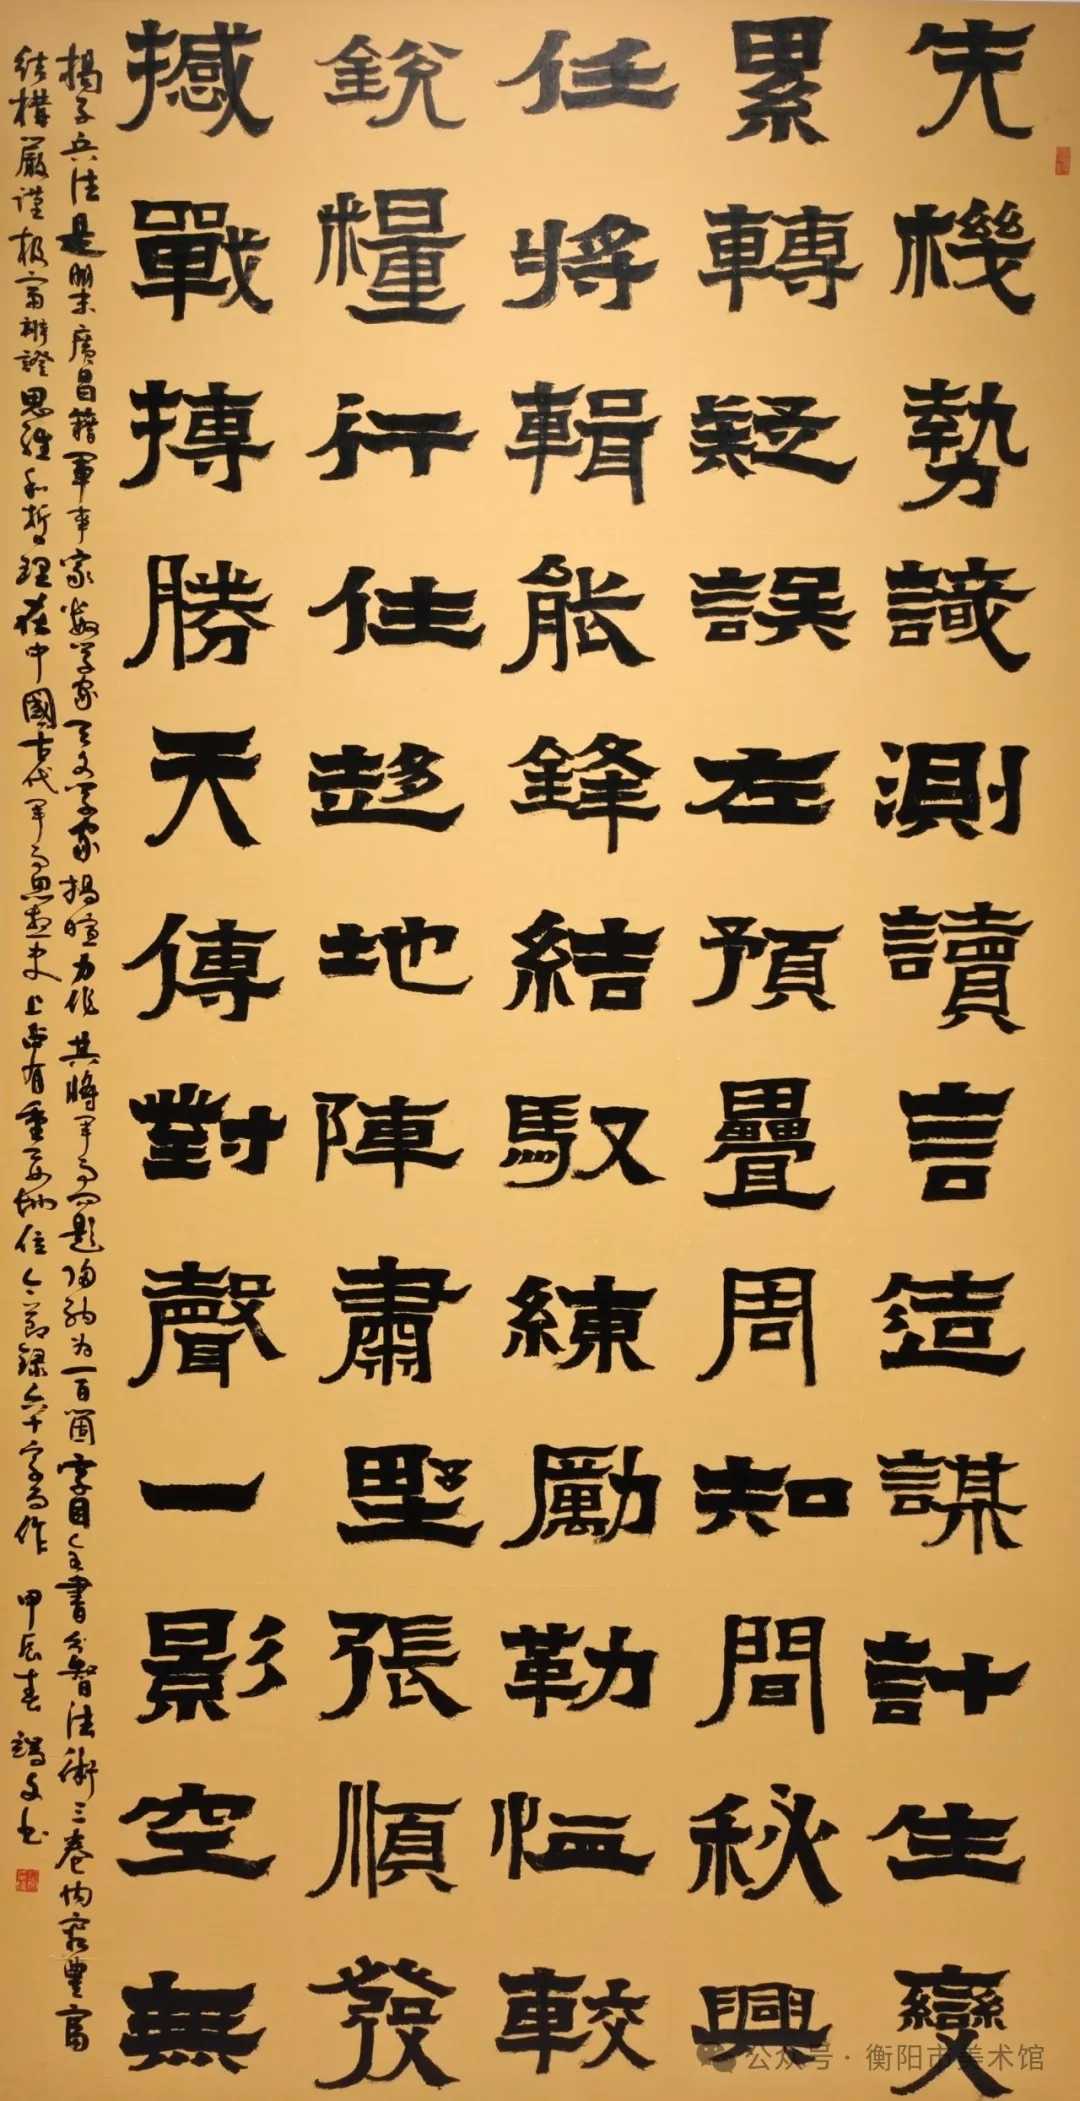 先機勢識測讀言造謀計生變
累轉疑誤左預疊周知間秘興
任將輯能鋒結馭練勵勒恤較
銳糧行住趍地陣肅野張順發
撼戰搏勝天傳對聲一影空無
揭子兵法是明末廣昌籍軍事家數學家天文學家揭暄力作其將軍事問題歸納為一百個字目全書分智法術三卷內容豐富
結構嚴謹極富辯證思維和哲理在中國古代軍事思想史上占有重要地位今節錄六十字為作 甲辰春 文書
公众号·衡阳市美术馆